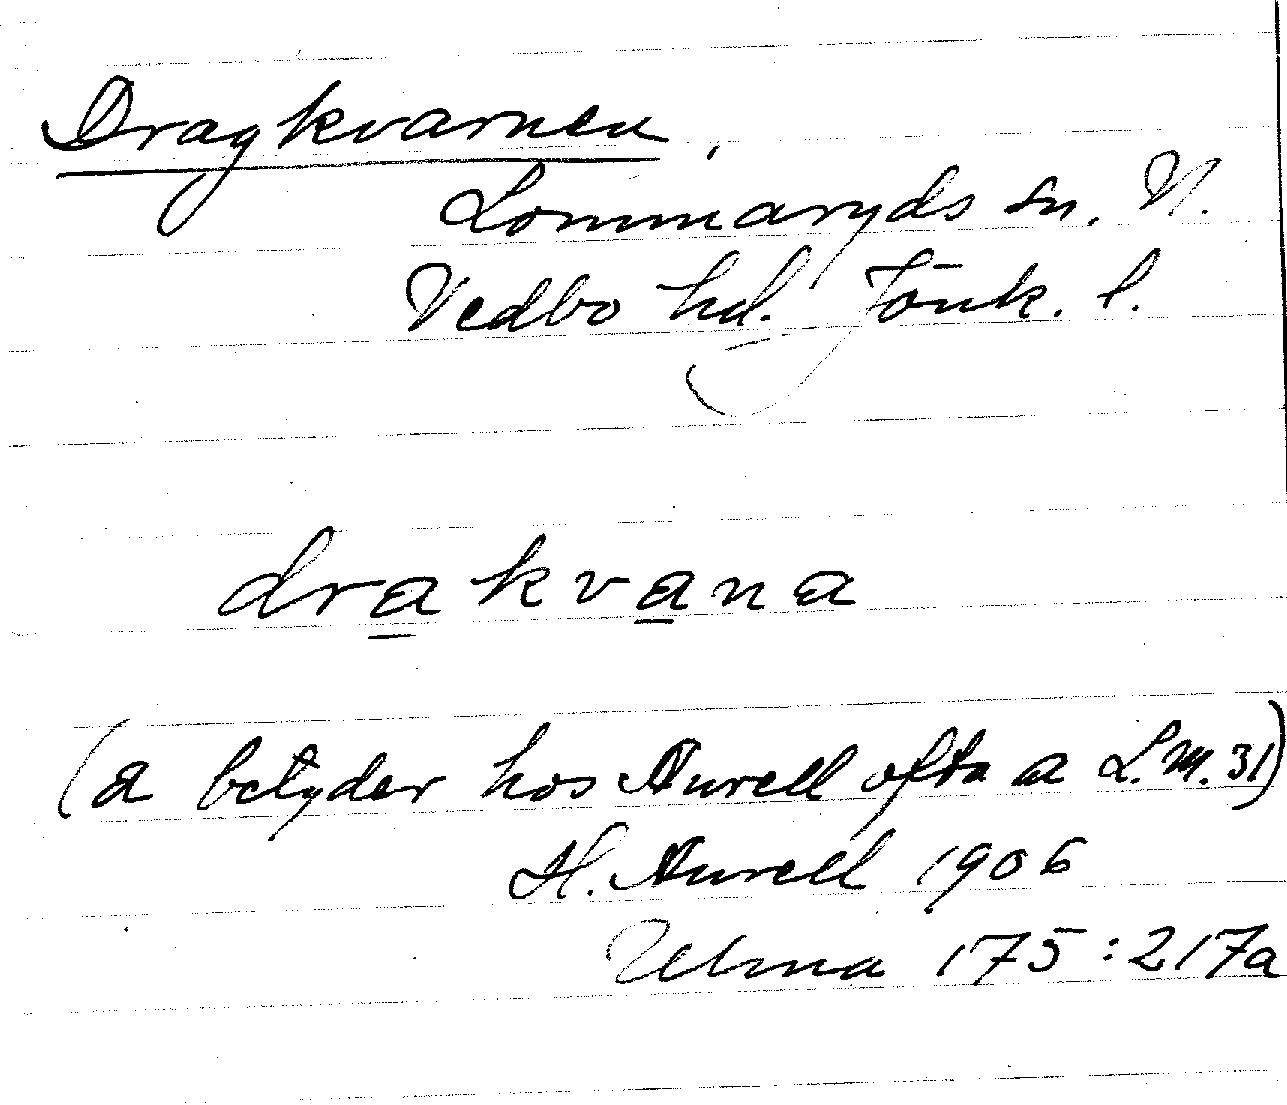 Dragkvarnen,
Lommaryds sn. N.
Vedbo hd. Jönk. l.
drakvana
(a betyder hos Aurell ofta a L.M. 31)
H. Aurell 1906
Ulma 175:217a